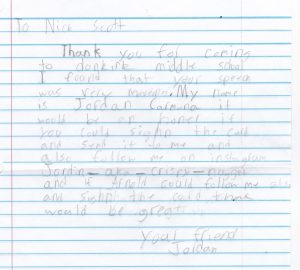 To Nick Scott
Thank you for coming
to donkirk middle school
I found that your speech
was very movegin. My name
is Jordan Carmona it
would be an honer if
you could sighn the card
and send it to me and
also follow me on instagram
Jordin_aka_crispy_nugget
and if Arnold could follow me also
and sighn the card that
would be great.
your friend
Jordan